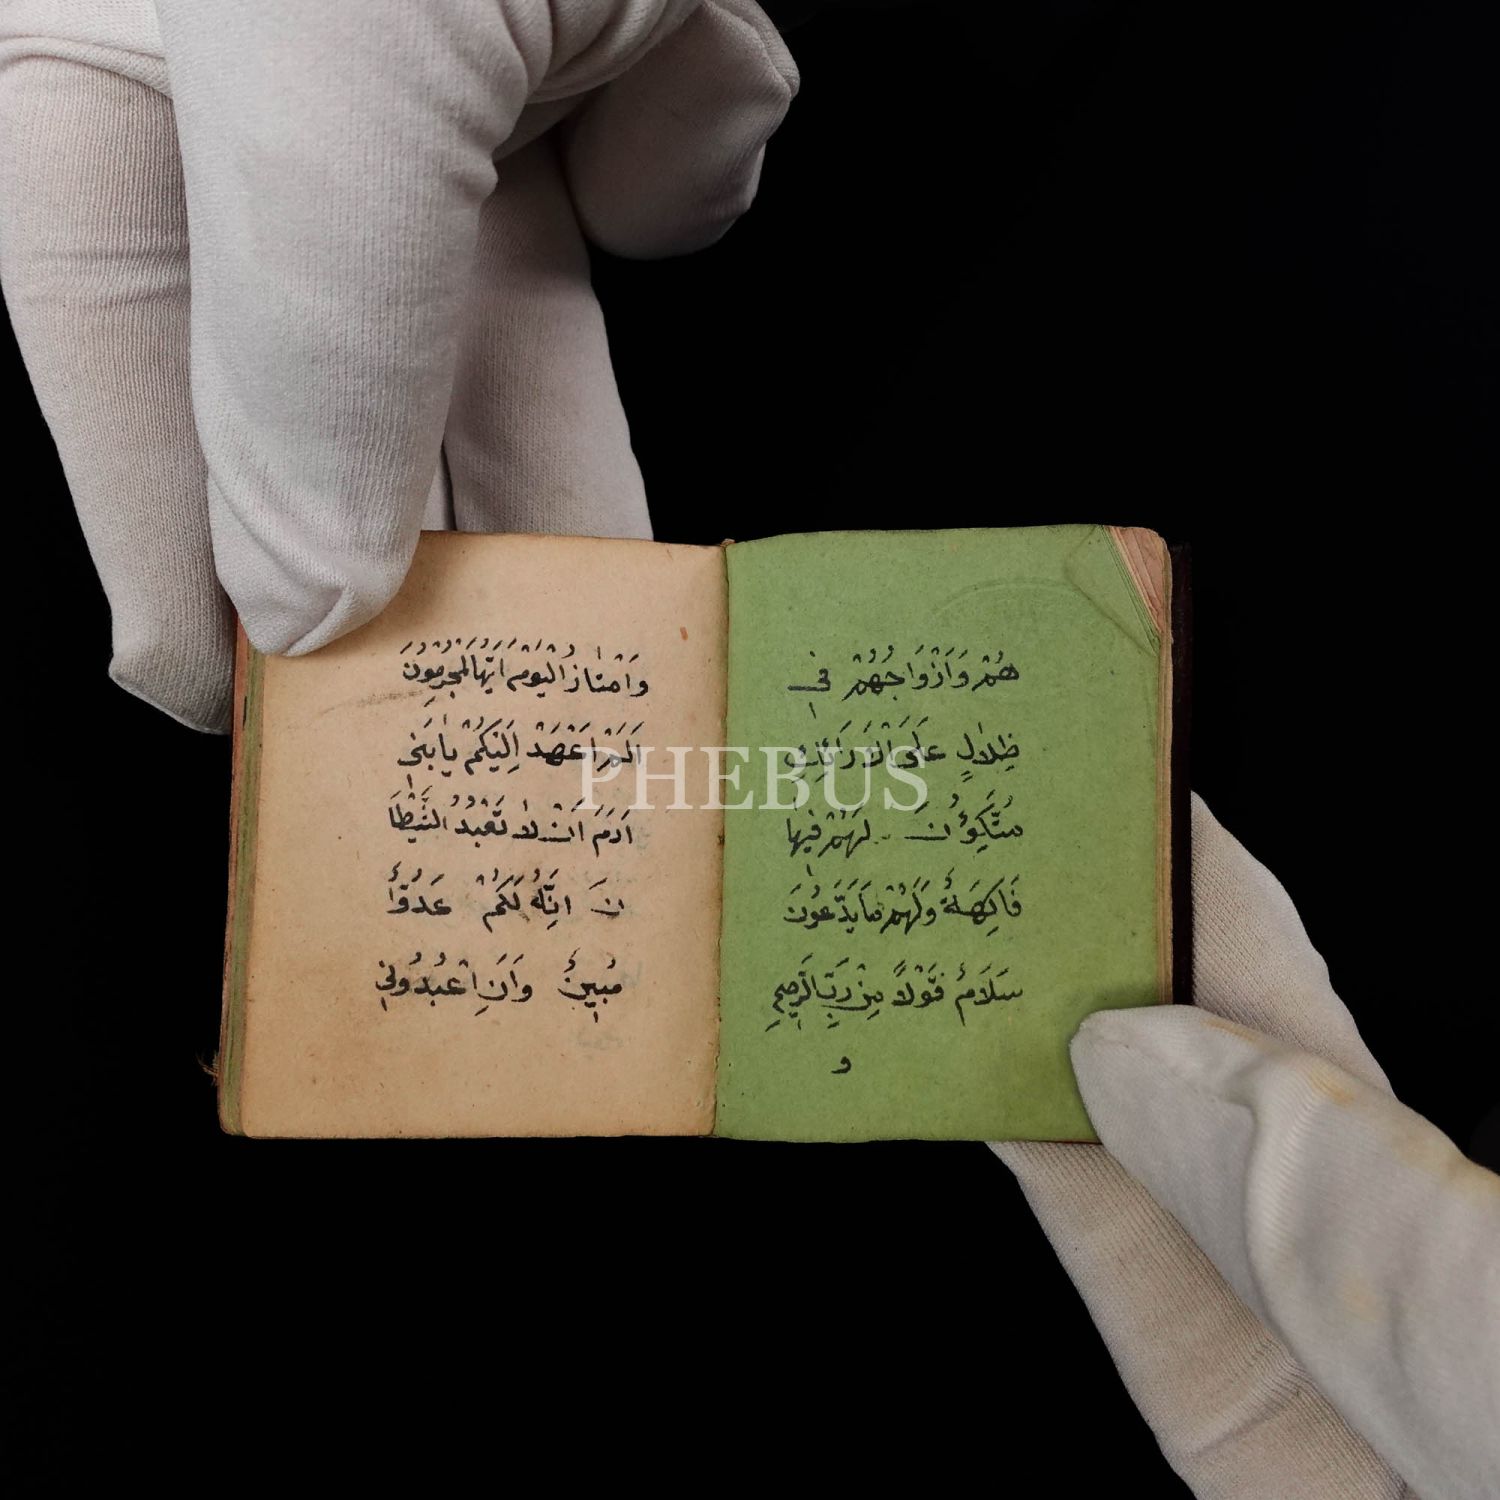 هُمْ وَاَزْوَاجُهُمْ فٖى
ظِلَالٍ عَلَى الْاَرَائِكِ
مُتَّكِؤُنَ لَهُمْ فٖيهَا
فَاكِهَةٌ وَلَهُمْ مَايَدَّعُونَ
سَلَامٌ قَوْلًا مِنْ رَبٍّ الرَّحٖيمِ
و
وَامْتَازُ الْيَوْمَ اَيُّهَا الْمُجْرِمُونَ
اَلَمْ اَعْهَدْ اِلَيْكُمْ يَابَنٖى
اَدَمَ اَنْ لَا تَعْبُدُ الشَّيْطَا
نَ اِنَّهُ لَكُمْ عَدُوٌّ
مُبٖينٌ وَاَنِ اعْبُدُونٖى
PHEBUS